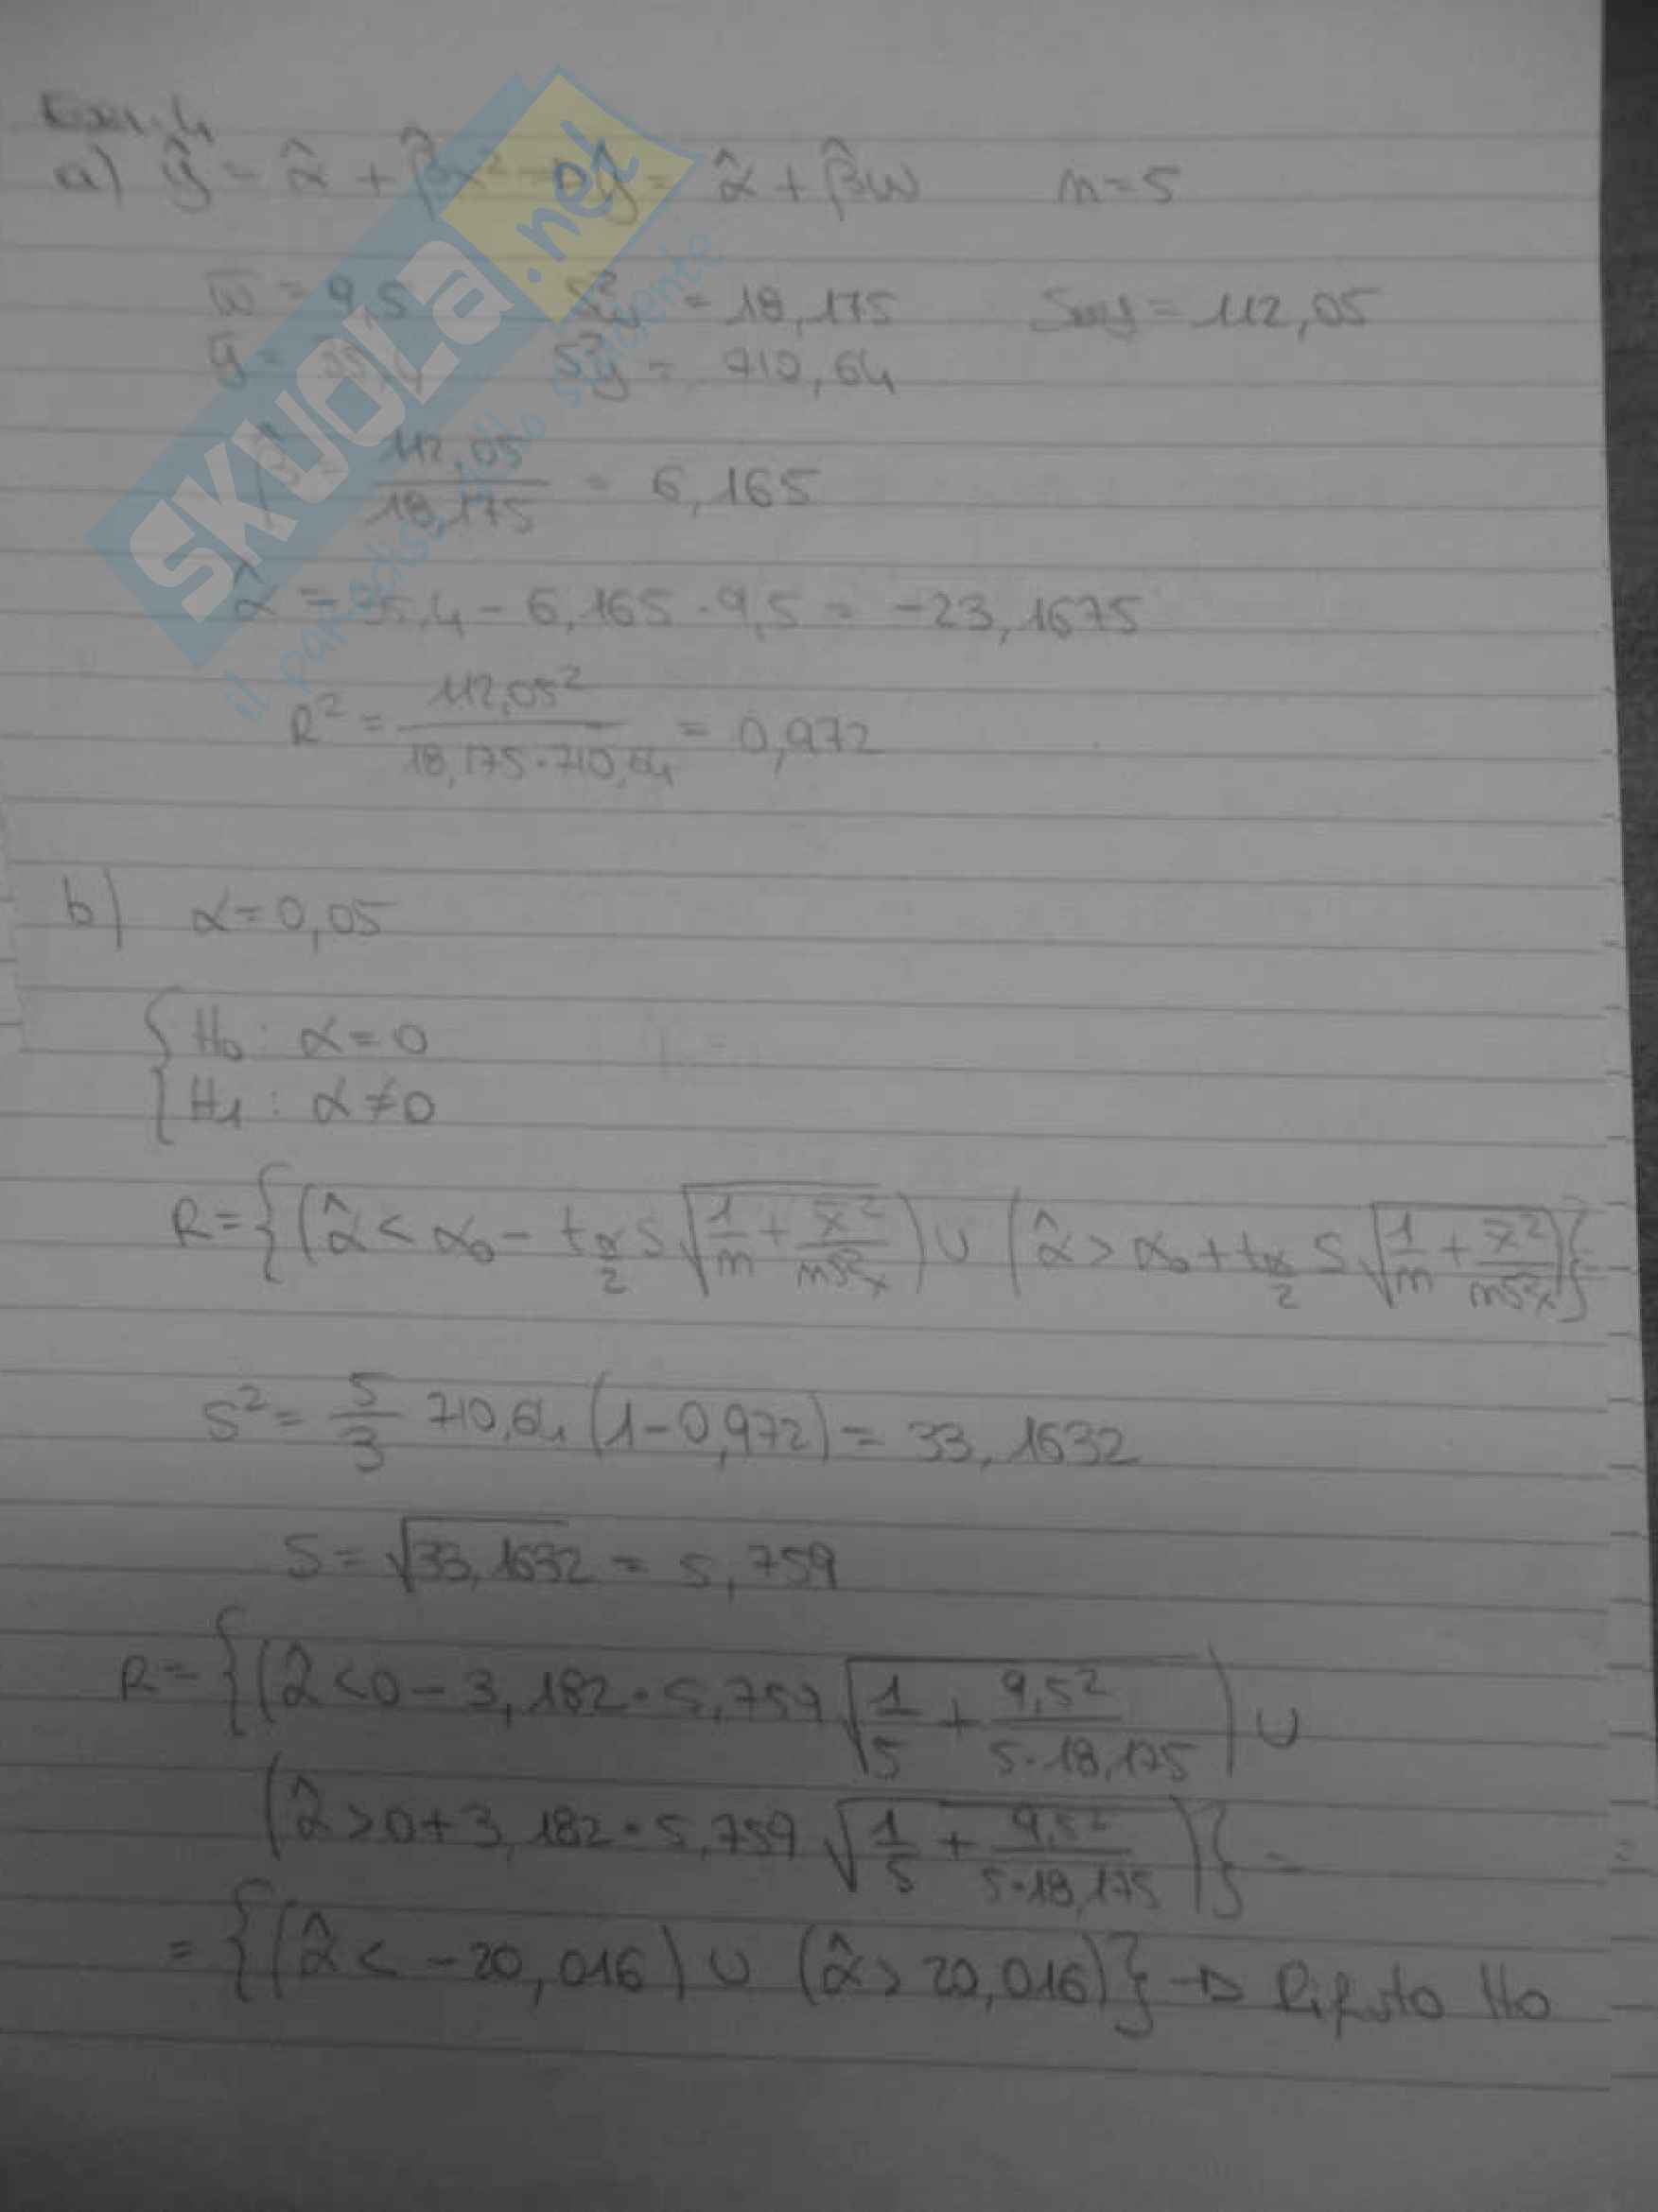 Eser. 4
a) ŷ = α̂ + β̂x² → ŷ = α̂ + β̂w n=5
w̄ = 9,5 S²w = 18,175 Swy = 112,05
ȳ = 35,4 S²y = 710,64
β̂ = 112,05/18,175 = 6,165
α̂ = 35,4 - 6,165 · 9,5 = -23,1675
R² = 112,05²/18,175·710,64 = 0,972
b) α=0,05
{H₀: α=0
H₁: α≠0
R={(α̂ < α₀ - t α/2 S √(1/n + x̄²/nS²x)) ∪ (α̂ > α₀ + t α/2 S √(1/n + x̄²/nS²x))}
S² = 5/3 710,64 (1-0,972) = 33,1632
S = √33,1632 = 5,759
R={(α̂<0-3,182·5,759 √(1/5 + 9,5²/5·18,175)) ∪
(α̂>0+3,182·5,759 √(1/5 + 9,5²/5·18,175))} =
= {(α̂ < -20,016) ∪ (α̂ > 20,016)} → Rifiuto H₀
SKUOLA.net
il paradiso dello studente